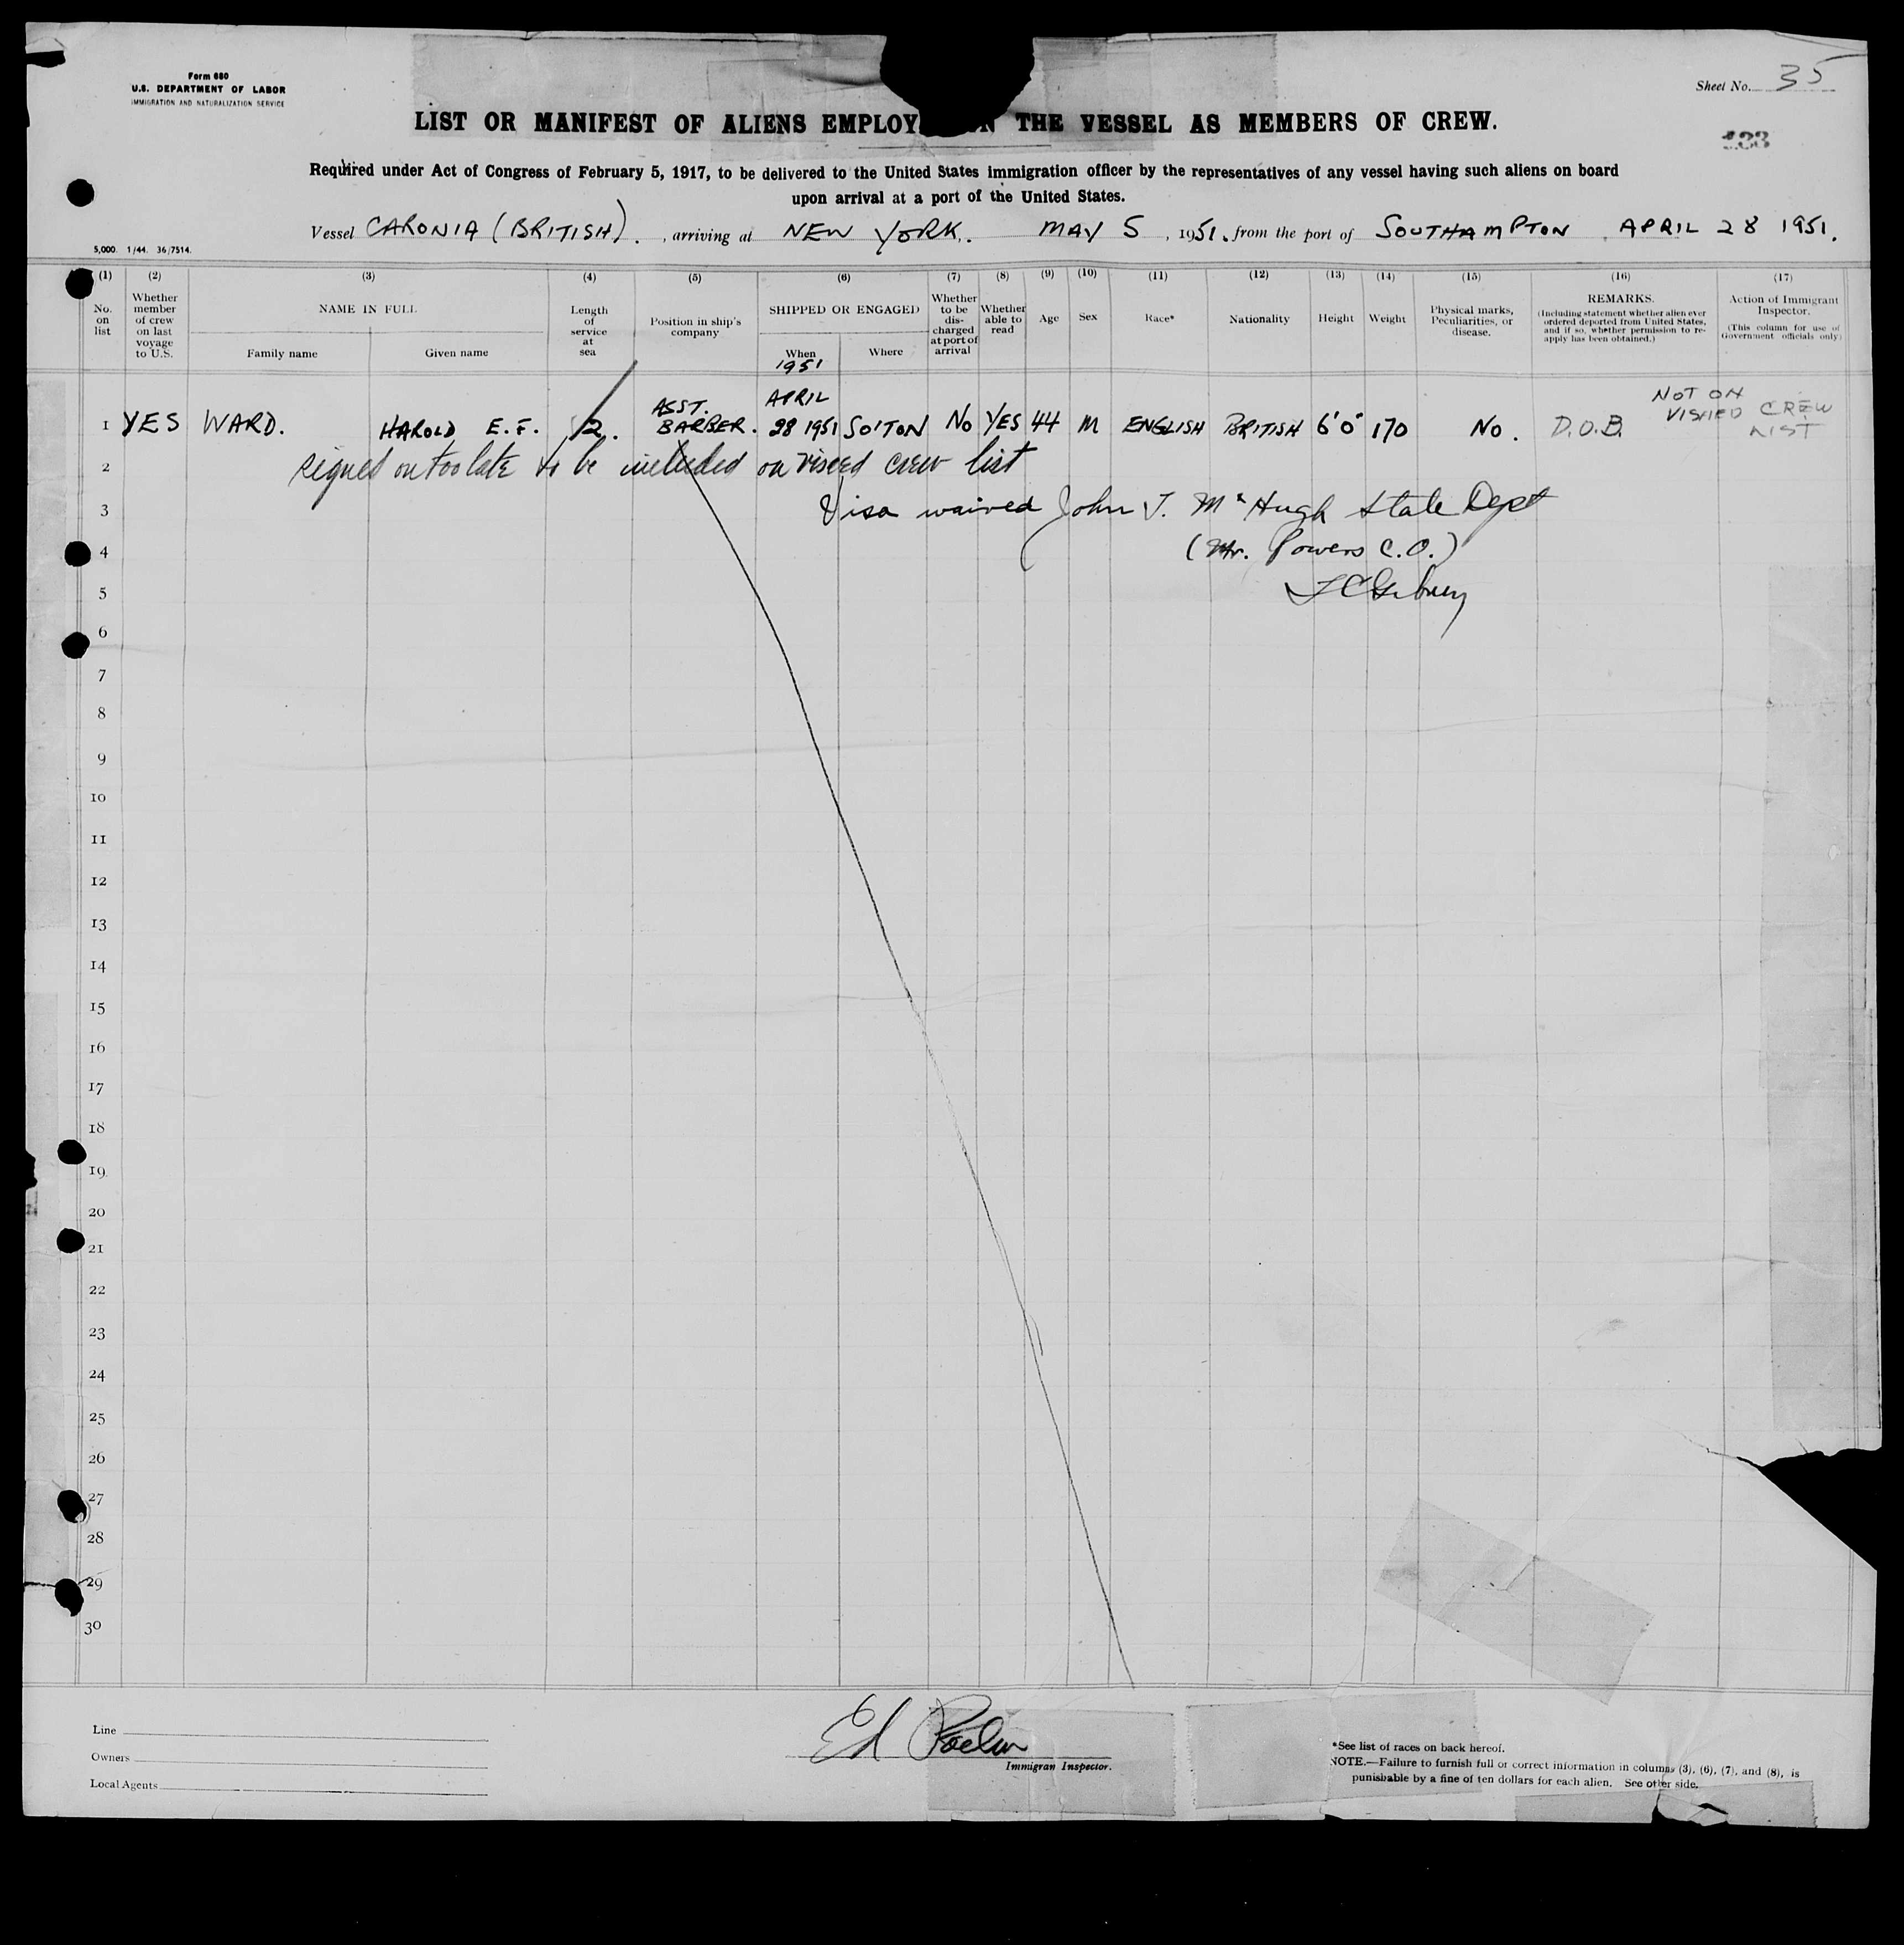 Form 680
U.S. DEPARTMENT OF LABOR
IMMIGRATION AND NATURALIZATION SERVICE
Sheet No. 35
LIST OR MANIFEST OF ALIENS EMPLOY N THE VESSEL AS MEMBERS OF CREW.
Required under Act of Congress of February 5, 1917, to be delivered to the United States immigration officer by the representatives of any vessel having such aliens on board
upon arrival at a port of the United States.
Vessel CARONIA (BRITISH). , arriving at NEW YORK. MAY 5 , 1951. from the port of SOUTHAMPTON APRIL 28 1951.
5,000. 1/44. 36/7514.
(1) (2) (3) (4) (5) (6) (7) (8) (9) (10) (11) (12) (13) (14) (15) (16) (17)
No. on list
Whether member of crew on last voyage to U.S.
NAME IN FULL
Family name
Given name
Length of service at sea
Position in ship's company
SHIPPED OR ENGAGED
When
Where
Whether to be dis-charged at port of arrival
Whether able to read
Age
Sex
Race*
Nationality
Height
Weight
Physical marks, Peculiarities, or disease.
REMARKS.
(Including statement whether alien ever ordered deported from United States, and if so, whether permission to re-apply has been obtained.)
Action of Immigrant Inspector.
(This column for use of Government officials only)
1951
APRIL
ASST.
NOT ON
VISAED CREW
LIST
1 YES WARD. HAROLD E. F. 2. BARBER. 28 1951 SO'TON NO YES 44 M ENGLISH BRITISH 6'0" 170 NO. D.O.B.
2 signed on too late to be included on visaed crew list
3 Visa waived John J. McHugh State Dept
4 (Mr. Powers C.O.)
5
6
7
8
9
10
11
12
13
14
15
16
17
18
19
20
21
22
23
24
25
26
27
28
29
30
Line
Owners
Local Agents
Ed
Immigran Inspector.
*See list of races on back hereof.
NOTE.—Failure to furnish full or correct information in columns (3), (6), (7), and (8), is
punishable by a fine of ten dollars for each alien. See other side.